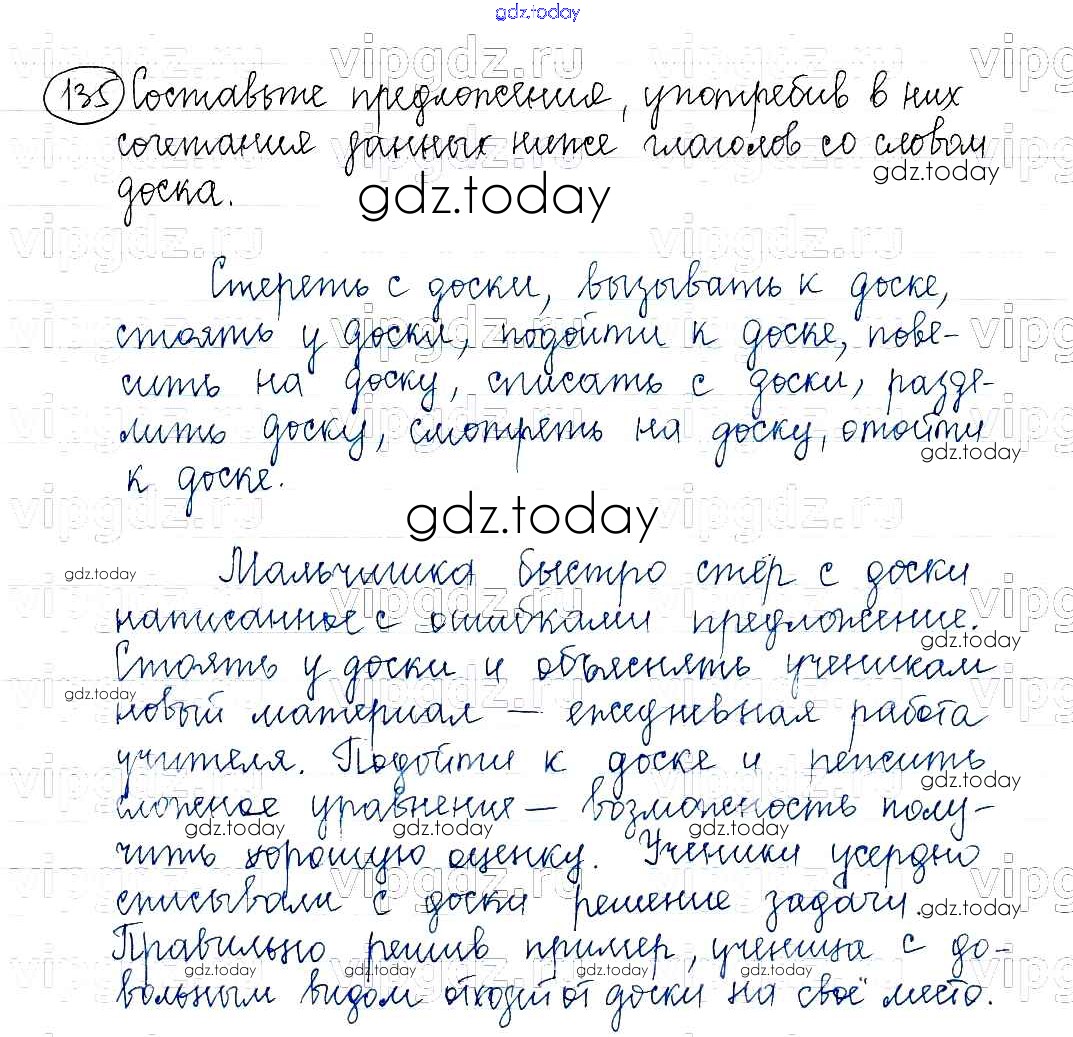 gdz.today
135 Составьте предложения, употребив в них
сочетания данных ниже глаголов со словом
gdz.today
доска.
gdz.today
Стереть с доски, вызывать к доске,
стоять у доски, подойти к доске, пове-
сить на доску, списать с доски, разде-
лить доску, смотреть на доску, отойти
gdz.today
к доске.
gdz.today
Мальчишка быстро стёр с доски
gdz.today
написанное с ошибками предложение.
gdz.today
Стоять у доски и объяснять ученикам
gdz.today
новый материал — ежедневная работа
учителя. Подойти к доске и решить
gdz.today
сложное уравнение — возможность полу-
gdz.today gdz.today gdz.today
чить хорошую оценку. Ученики усердно
списывали с доски решение задачи.
gdz.today
Правильно решив пример, ученица с до-
gdz.today gdz.today gdz.today gdz.today
вольным видом отходит от доски на своё место.